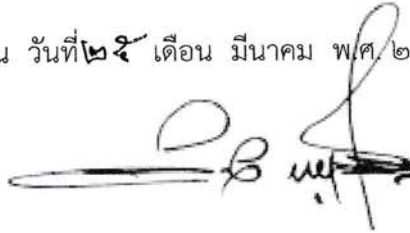 น วันที่ ๒๕ เดือน มีนาคม พ.ศ. ๒